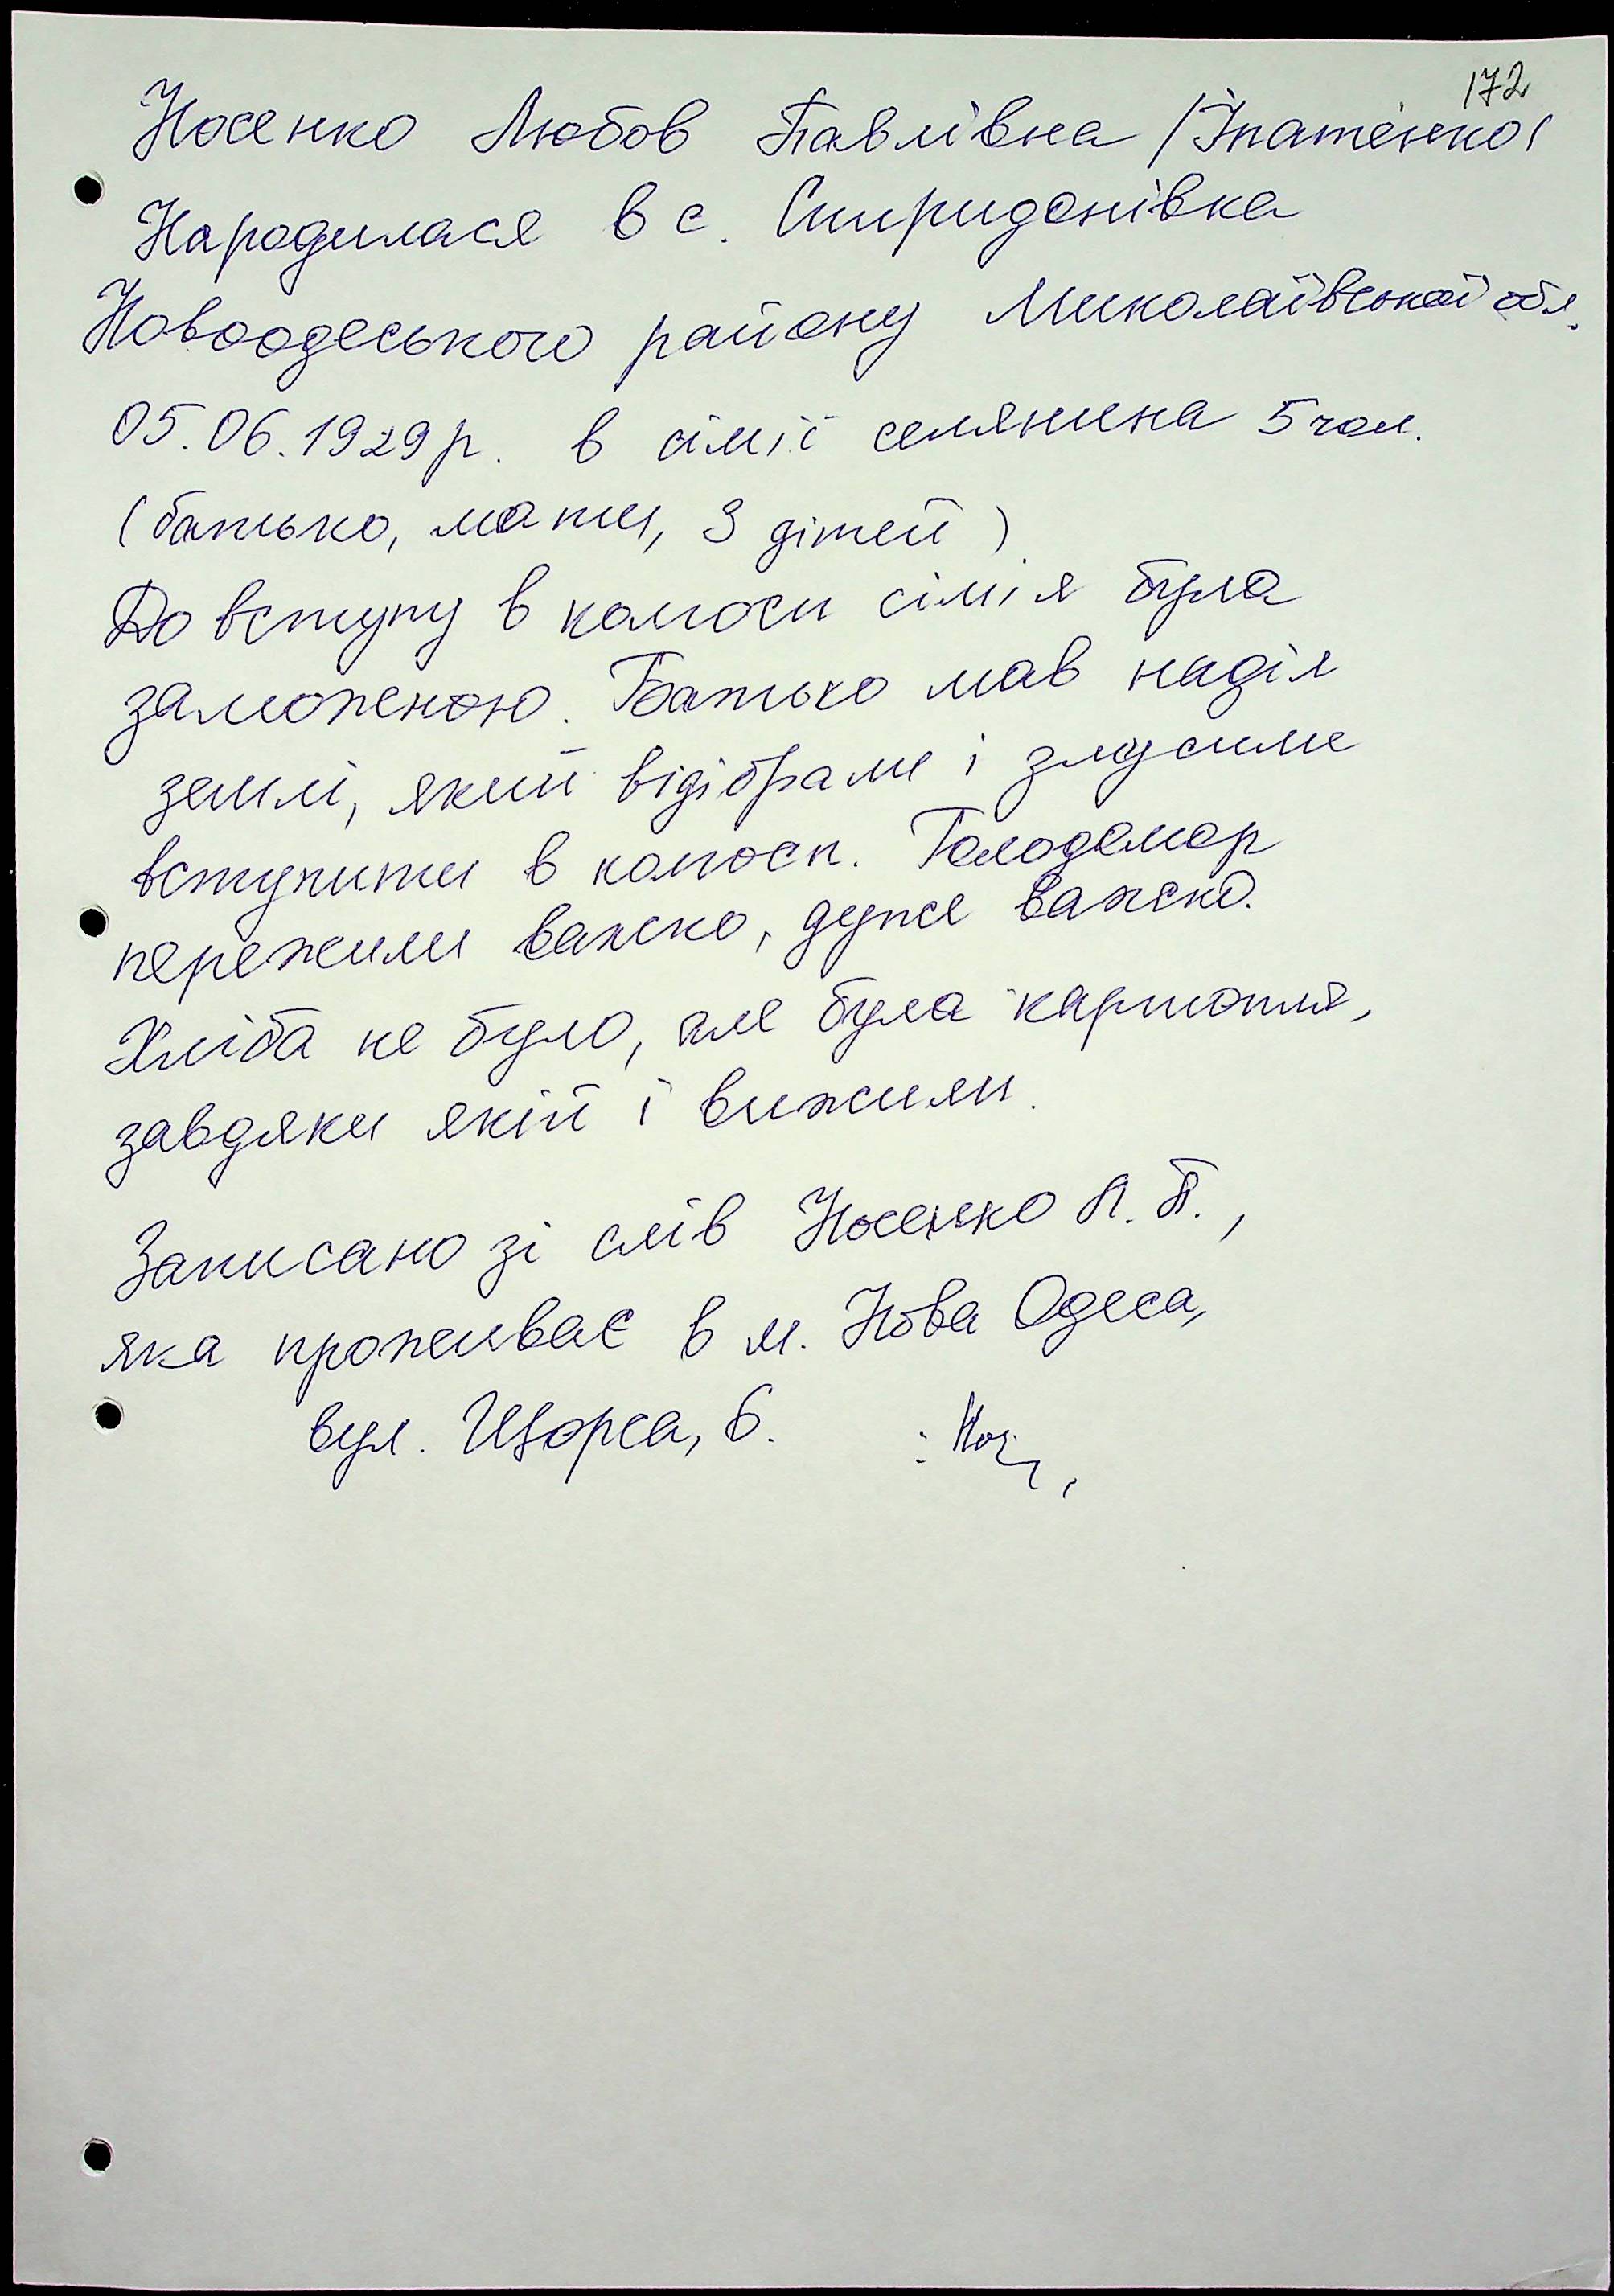 172
Носенко Любов Павлівна /Іпатенко/
Народилася в с. Спиридонівка
Новоодеського району Миколаївської обл.
05.06.1929р. в сім'ї селянина 5 чол.
(батько, мати, 3 дітей)
До вступу в колгосп сім'я була
заможною. Батько мав наділ
землі, який відібрали і змусили
вступити в колгосп. Голодомор
пережили важко, дуже важко.
Хліба не було, але була картопля,
завдяки якій і вижили.
Записано зі слів Носенко Л. П.,
яка проживає в м. Нова Одеса,
вул. Щорса, 6.